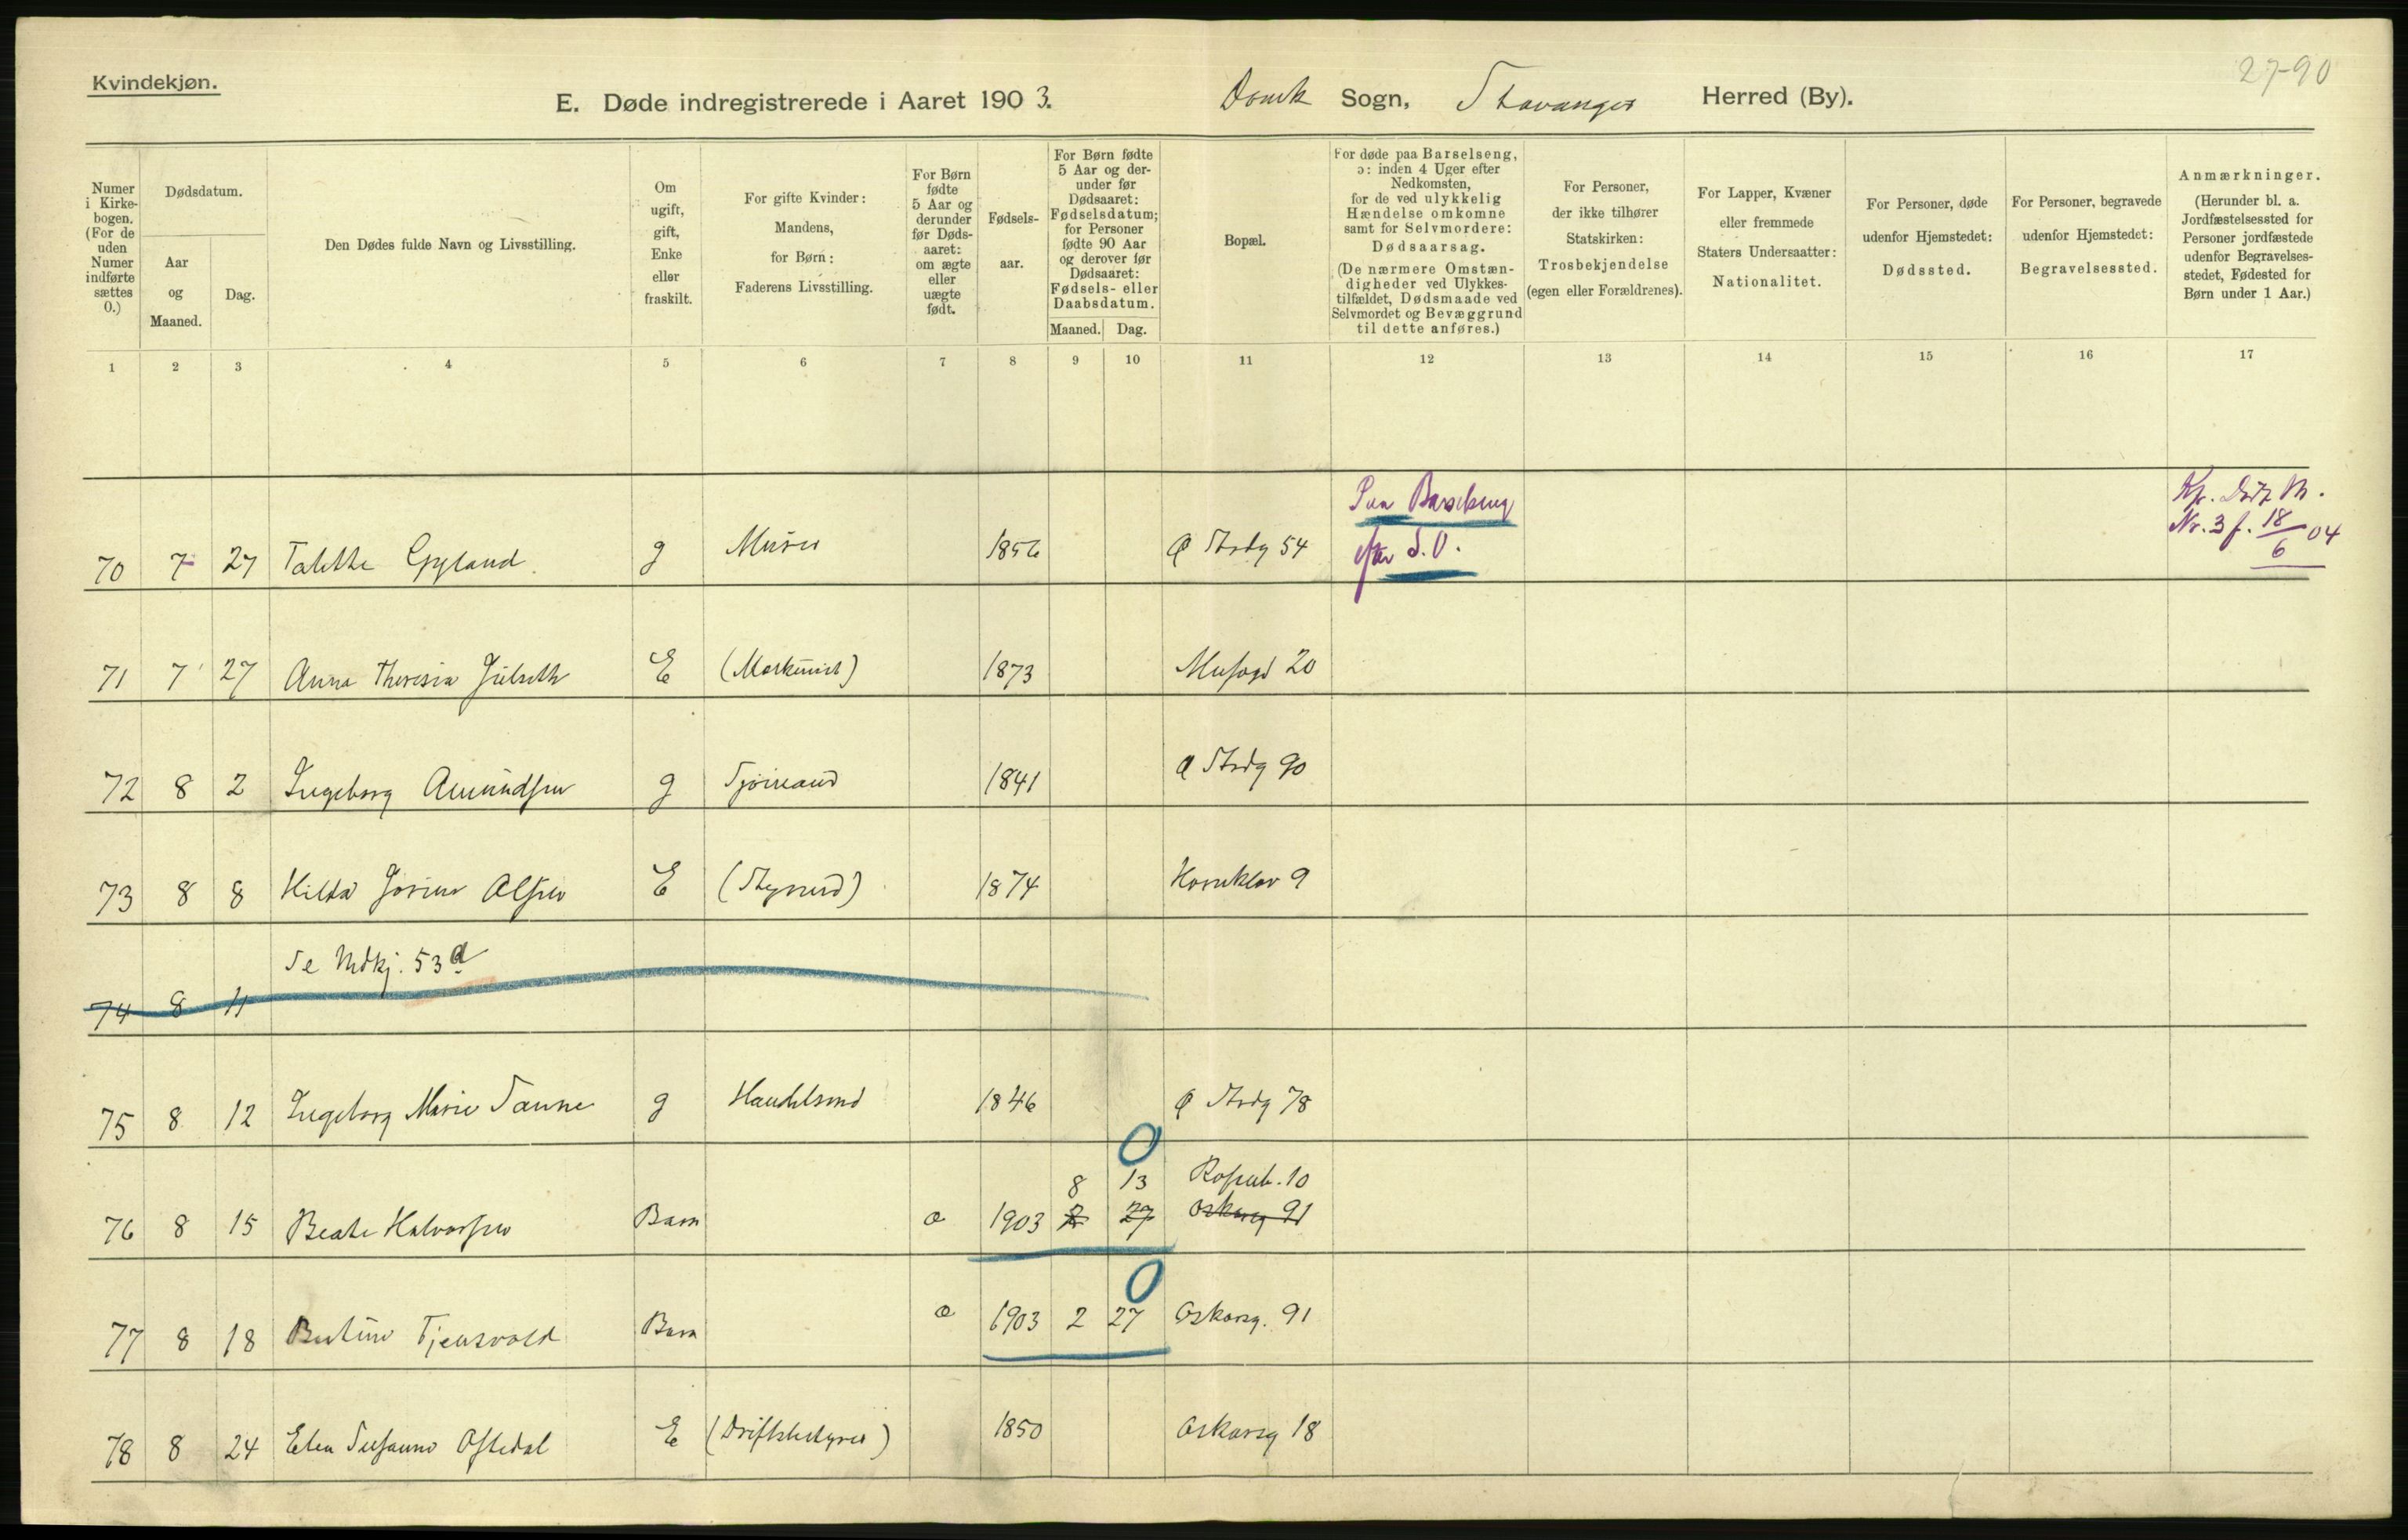 27-90
Kvindekjøn.
E. Døde indregistrerede i Aaret 1903. Domk Sogn, Stavanger Herred (By).
Numer i Kirke- bogen. (For de uden Numer indførte sættes 0.)
Dødsdatum.
Aar og Maaned.
Dag.
Den Dødes fulde Navn og Livsstilling.
Om ugift, gift, Enke eller fraskilt.
For gifte Kvinder: Mandens, for Børn: Faderens Livsstilling.
For Børn fødte 5 Aar og derunder før Døds- aaret: om ægte eller uægte født.
Fødsels- aar.
For Børn fødte 5 Aar og der- under før Dødsaaret: Fødselsdatum; for Personer fødte 90 Aar og derover før Dødsaaret: Fødsels- eller Daabsdatum.
Maaned. Dag.
Bopæl.
For døde paa Barselseng, ɔ: inden 4 Uger efter Nedkomsten, for de ved ulykkelig Hændelse omkomne samt for Selvmordere: Dødsaarsag. (De nærmere Omstæn- digheder ved Ulykkes- tilfældet, Dødsmaade ved Selvmordet og Bevæggrund til dette anføres.)
For Personer, der ikke tilhører Statskirken: Trosbekjendelse (egen eller Forældrenes).
For Lapper, Kvæner eller fremmede Staters Undersaatter: Nationalitet.
For Personer, døde udenfor Hjemstedet: Dødssted.
For Personer, begravede udenfor Hjemstedet: Begravelsessted.
Anmærkninger. (Herunder bl. a. Jordfæstelsessted for Personer jordfæstede udenfor Begravelses- stedet, Fødested for Børn under 1 Aar.)
1 2 3 4 5 6 7 8 9 10 11 12 13 14 15 16 17
Paa Barselseng
efter S.V.
Nr. 3 f. 18/6 04
70 7 27 Talette Gyland g Murer 1856 Ø Strdg 54
71 7 27 Anna Theresia E (Maskinist) 1873 20
72 8 2 Ingeborg Amundsen g Sjømand 1841 Ø Strdg 90
73 8 8 Hilda Olsen E (Styrmd) 1874 Hornklov 9
Se Mdkj. 53a
74 8 11
75 8 12 Ingeborg Marie Sanne g Handelsmd 1846 Ø Strdg 78
0
8 13 10
76 8 15 Beate Halvorsen Barn æ 1903 2 27 Oskarsg 91
0
77 8 18 Bertine Tjensvold Barn æ 1903 2 27 Oskarsg. 91
78 8 24 Elen Susanne Oftedal E (Driftsbestyrer) 1850 Oskarsg 18